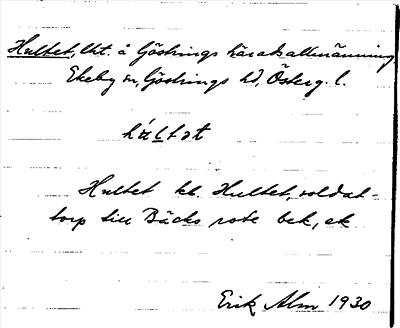 Hultet, lht. å Göstrings häradsallmänning
Ekeby sn, Göstrings hd, Österg. l.
húltət
Hultet kl. Hultet, soldat-
torp till Bäcks rote bek, ek
Erik Alm 1930